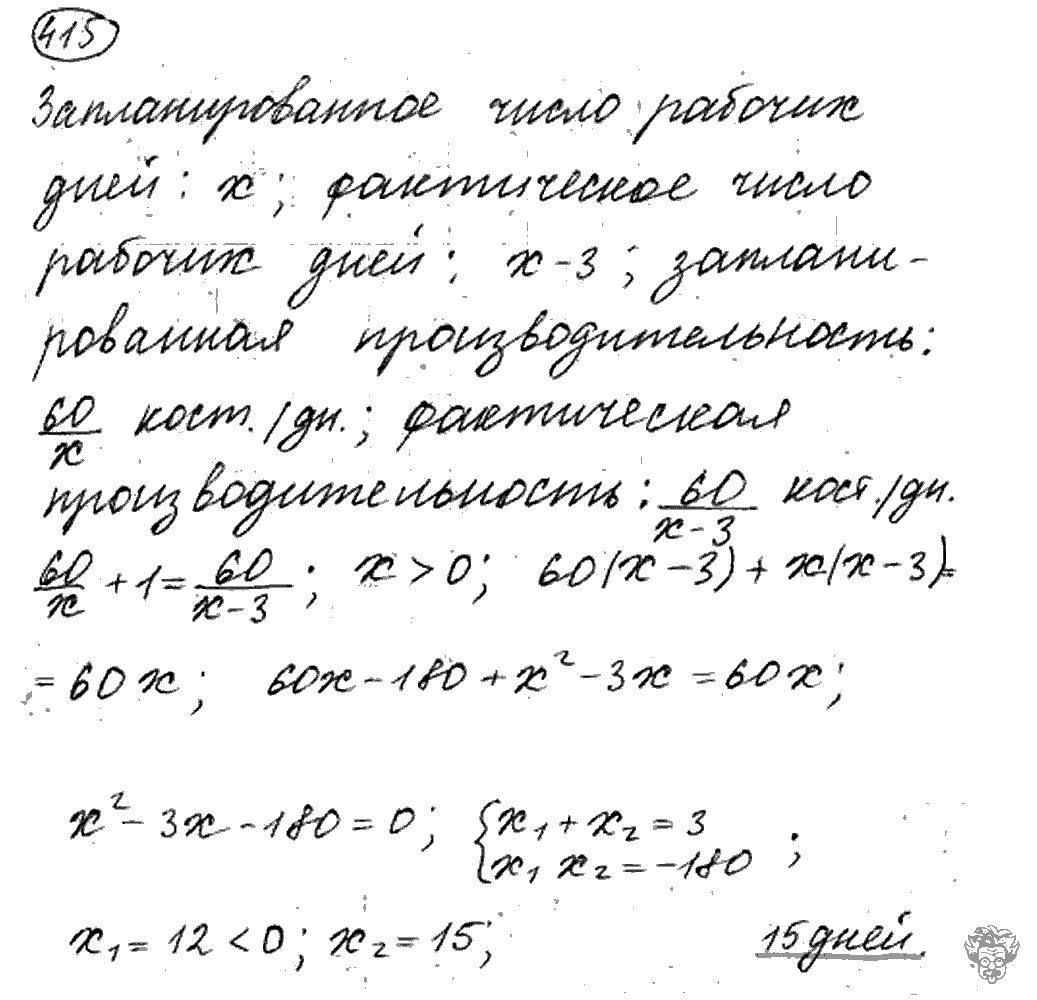 415
Запланированное число рабочих
дней: x; фактическое число
рабочих дней: x-3; заплани-
рованная производительность:
60/x кост./дн.; фактическая
производительность: 60/(x-3) кост./дн.
60/x + 1 = 60/(x-3); x > 0; 60(x-3) + x(x-3) =
= 60x; 60x - 180 + x² - 3x = 60x;
x² - 3x - 180 = 0; { x₁ + x₂ = 3
x₁ x₂ = -180 ;
x₁ = 12 < 0; x₂ = 15; 15 дней.